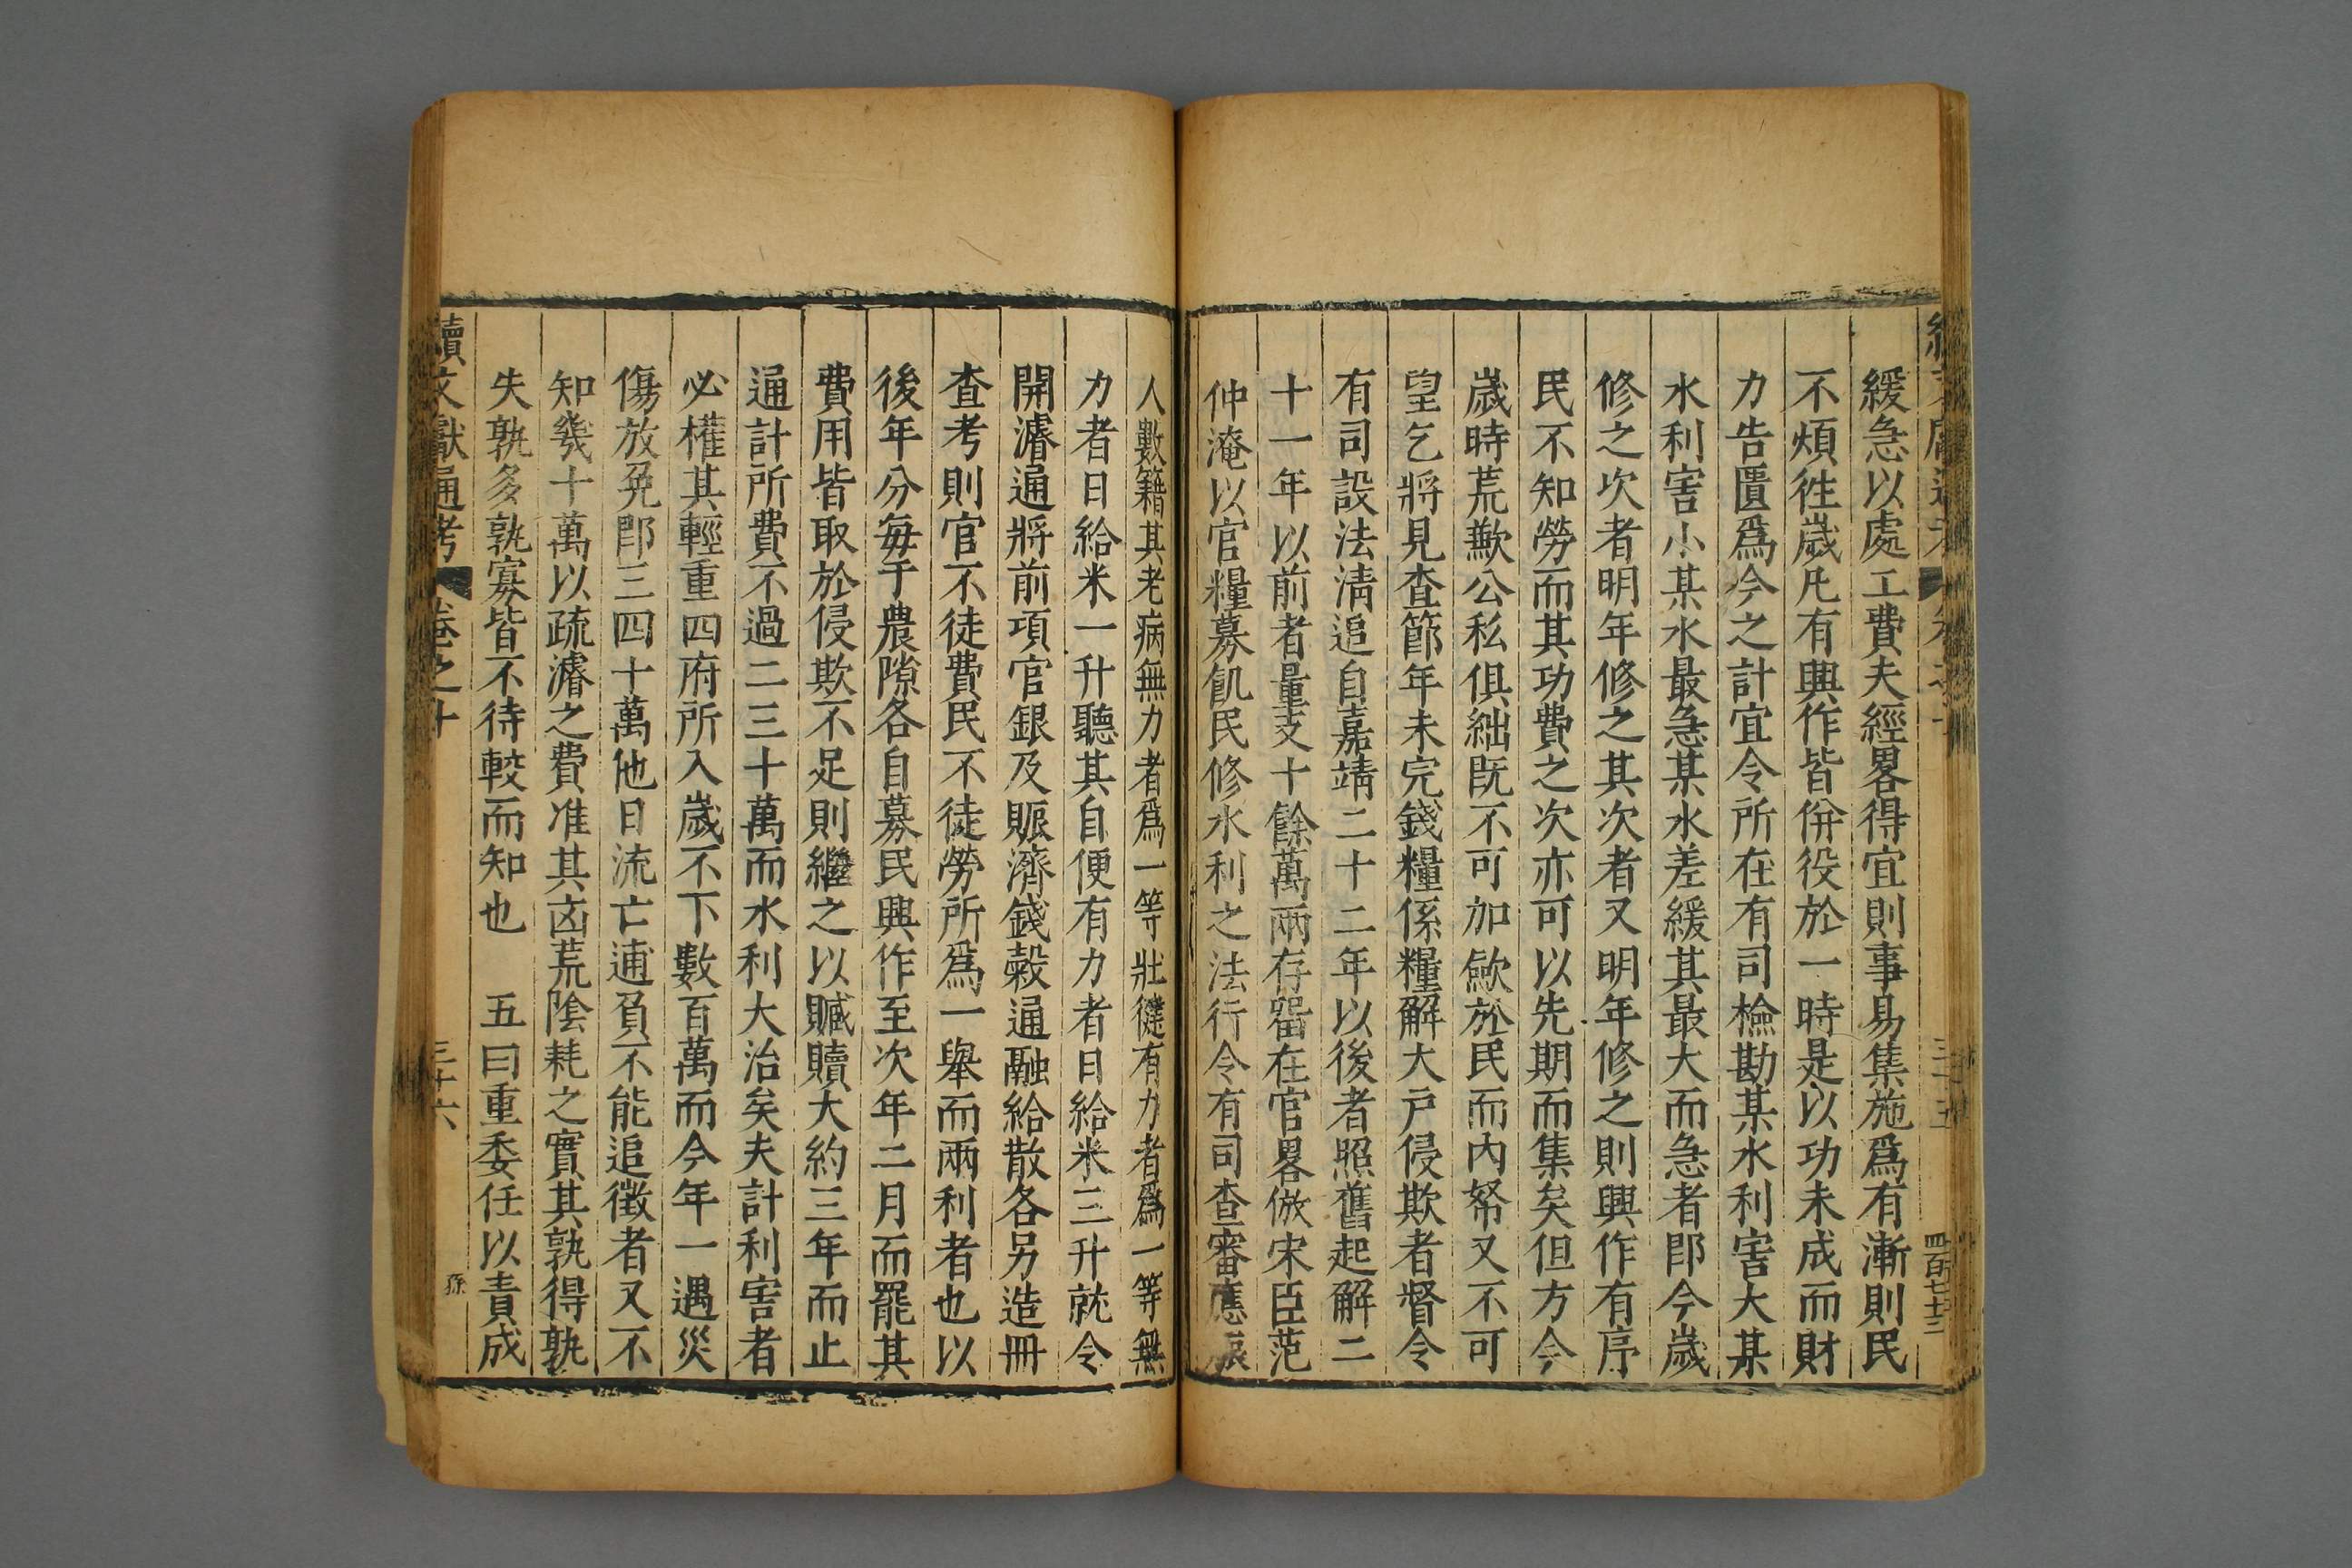 緩急以處工費夫經畧得宜則事易集施爲有漸則民
不煩徃歲凡有興作皆併役於一時是以功未成而財
力告匱爲今之計宜令所在有司檢勘某水利害大某
水利害小某水最急某水差緩其最大而急者即今歲
修之次者明年修之其次者又明年修之則興作有序
民不知勞而其功費之次亦可以先期而集矣但方今
歲時荒歉公私俱絀既不可加歛於民而內帑又不可
望乞將見查節年未完錢糧係糧解大戶侵欺者督令
有司設法清追自嘉靖二十二年以後者照舊起解二
十一年以前者量支十餘萬兩存留在官畧倣宋臣范
仲淹以官糧募飢民修水利之法行令有司查審應賑
人數籍其老病無力者爲一等壯健有力者爲一等無
力者日給米一升聽其自便有力者日給米三升就令
開濬通將前項官銀及賑濟錢穀通融給散各另造冊
查考則官不徒費民不徒勞所爲一舉而兩利者也以
後年分每于農隙各自募民興作至次年二月而罷其
費用皆取於侵欺不足則繼之以贓贖大約三年而止
通計所費不過二三十萬而水利大治矣夫計利害者
必權其輕重四府所入歲不下數百萬而今年一遇災
傷放免即三四十萬他日流亡逋負不能追徵者又不
知幾十萬以疏濬之費准其凶荒陰耗之實其孰得孰
失孰多孰寡皆不待較而知也　五曰重委任以責成
續文獻通考 卷之十 三十六 孫
三十五 四百七十三